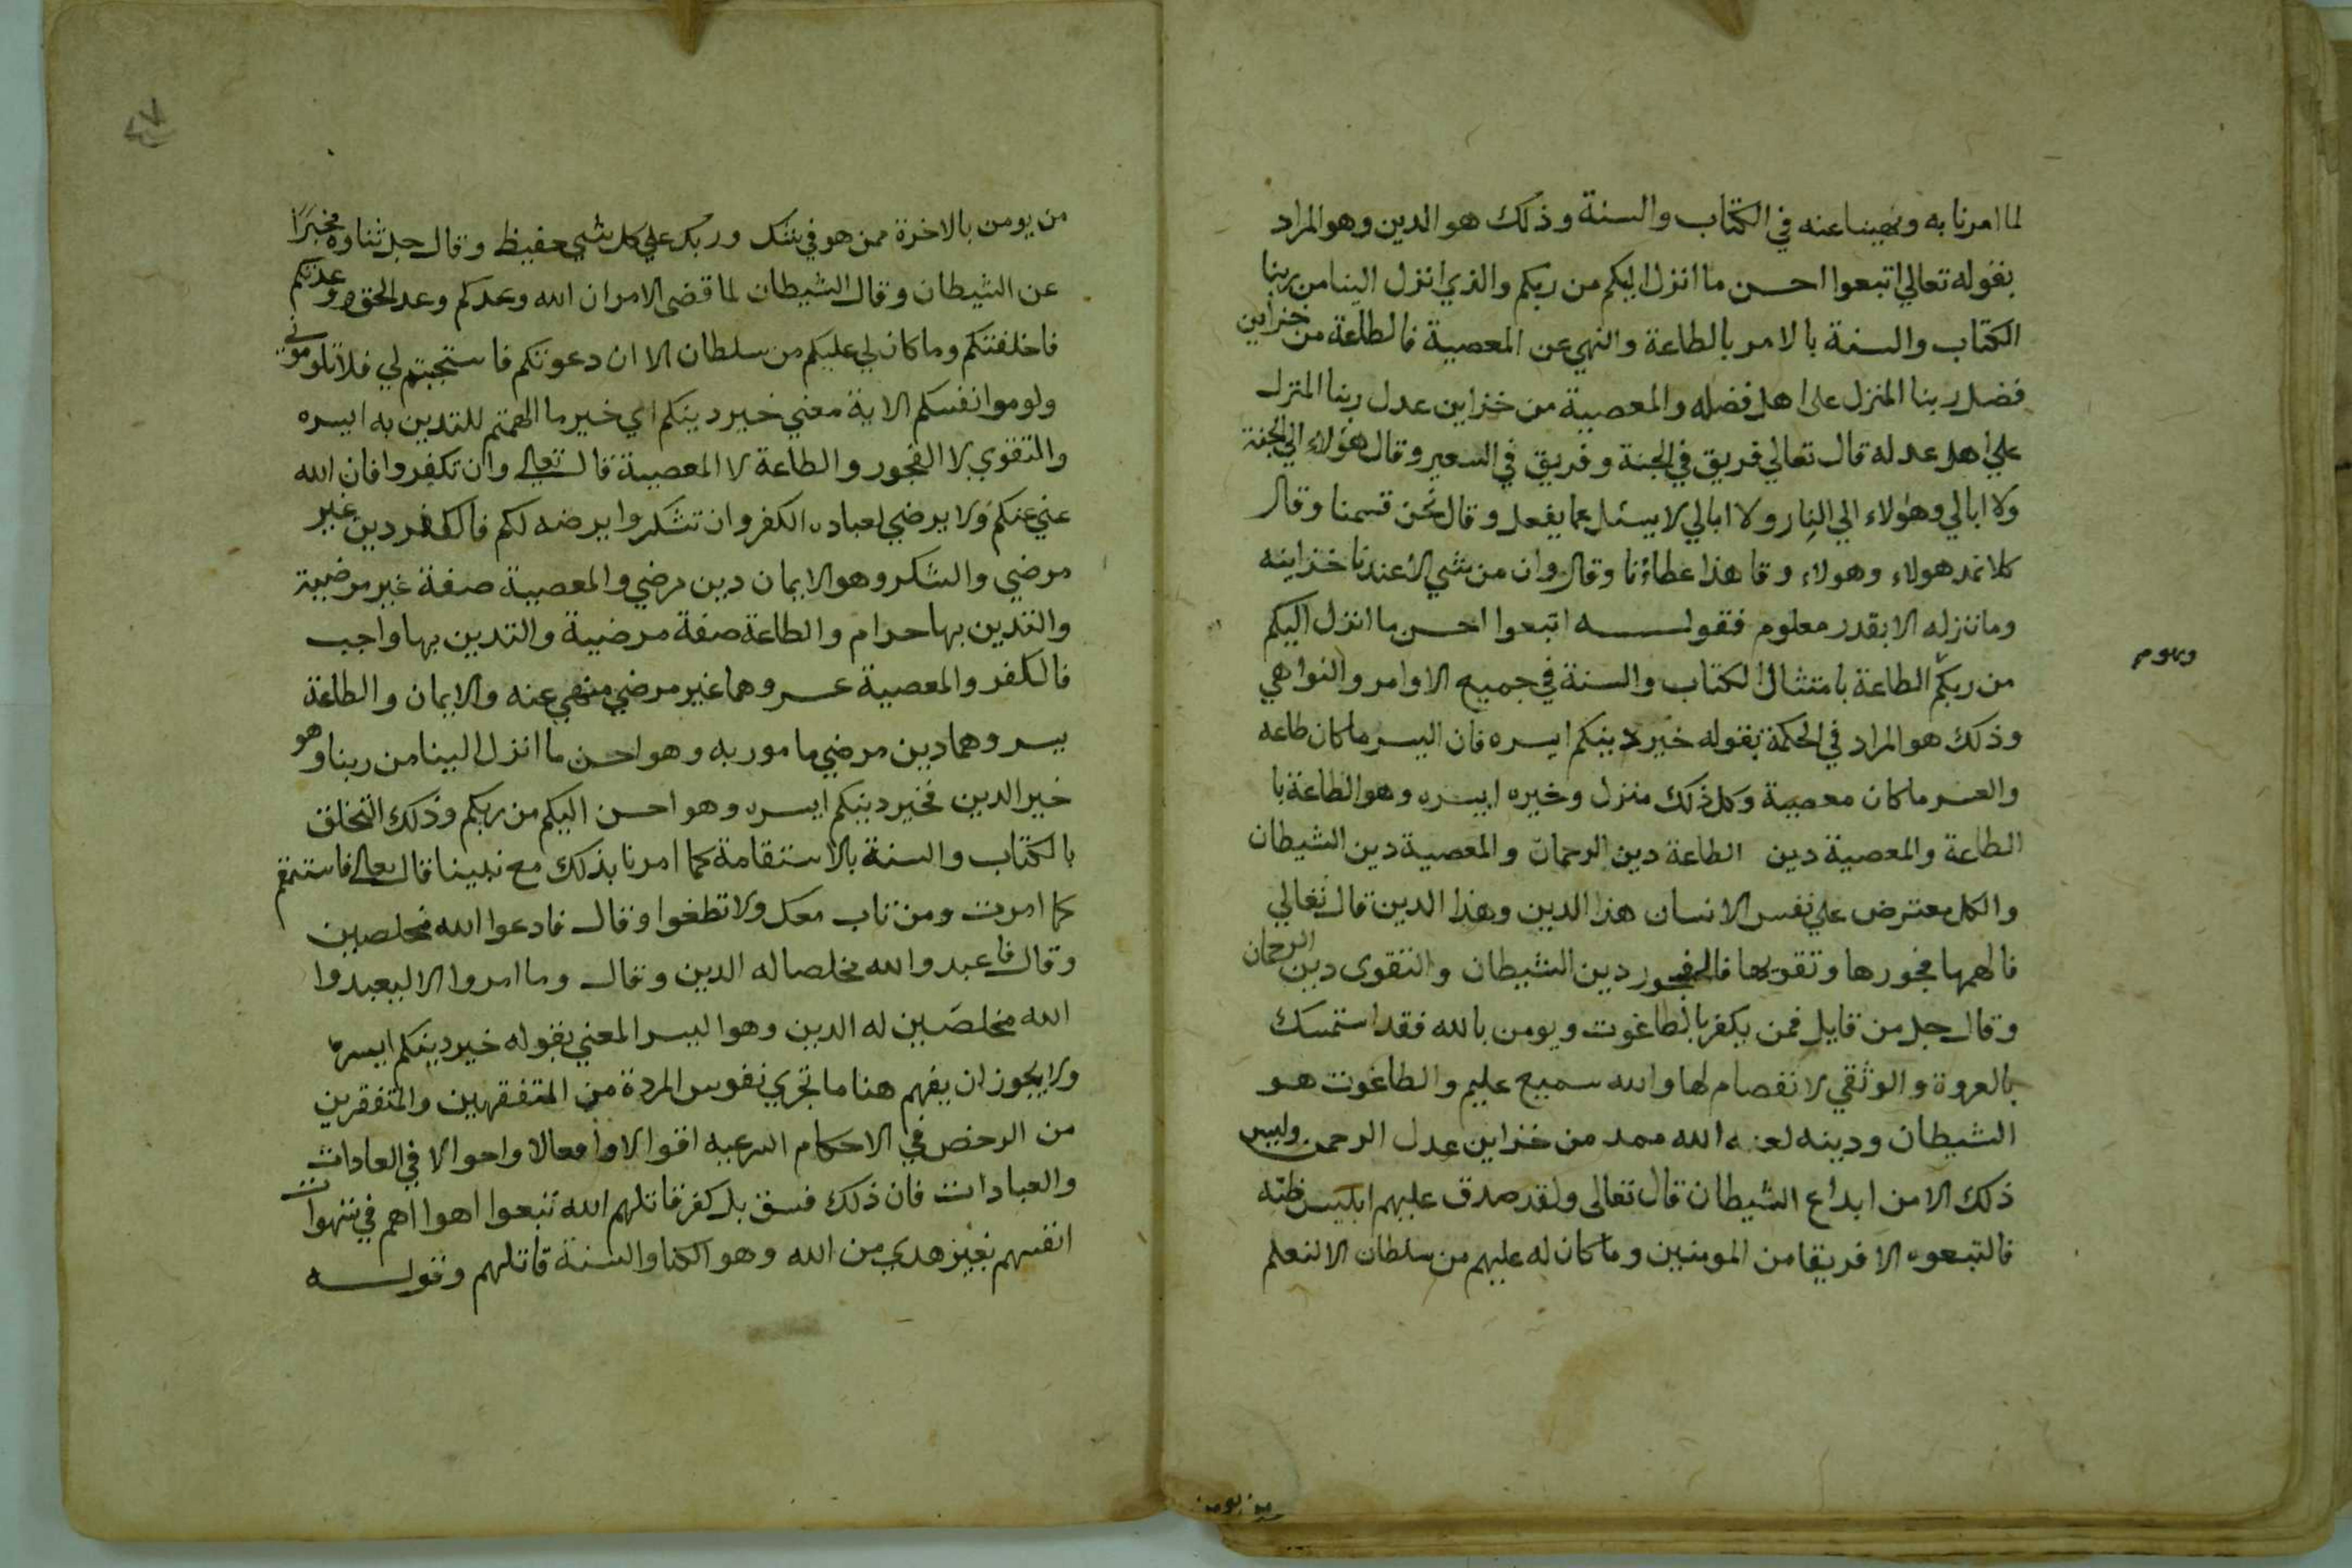 لما امرنا به ونهينا عنه في الكتاب والسنة وذلك هو الدين وهو المراد
بقوله تعالي اتبعوا احسن ما انزل اليكم من ربكم والذي انزل الينا من ربنا
الكتاب والسنة بالامر بالطاعة والنهي عن المعصية فالطاعة من خزاين
فضل ربنا المنزل على اهل فضله والمعصية من خزاين عدل ربنا المنزل
علي اهل عدله قال تعالي فريق في الجنة وفريق في السعير وقال هؤلاء الي الجنة
ولا ابالي وهؤلاء الي النار ولا ابالي لا يسئل عما يفعل وقال نحن قسمنا وقال
كلا نمد هولاء وهولاء وقا هذا عطاؤنا وقال وان من شي الا عندنا خزاينه
وما ننزله الا بقدر معلوم فقوله اتبعوا احسن ما انزل اليكم
من ربكم الطاعة بامتثال الكتاب والسنة في جميع الاوامر والنواهي
وذلك هو المراد في الحكمة بقوله خير دينكم ايسره فان اليسر ما كان طاعه
والعسر ما كان معصية وكل ذلك منزل وخيره ايسره وهو الطاعة با
الطاعة والمعصية دين الطاعة دين الرحمان والمعصية دين الشيطان
والكل معترض علي نفس الانسان هذا الدين وهذا الدين قال تعالي
فالهمها فجورها وتقويها فالفجور دين الشيطان والتقوى دين الرحمان
وقال جل من قايل فمن يكفر بالطاغوت ويومن بالله فقد استمسك
بالعروة والوثقي لا نفصام لها والله سميع عليم والطاغوت هو
الشيطان ودينه لعنه الله ممد من خزاين عدل الرحمن وليس
ذلك الا من ابداع الشيطان قال تعالى ولقد صدق عليهم ابليس ظنه
فالتبعوه الا فريقا من المومنين وما كان له عليهم من سلطان الا لنعلم
من يومن
من يومن بالاخرة ممن هو في شك وربك علي كل شي حفيظ وقال جل ثناوه مخبرًا
عن الشيطان وقال الشيطان لما قضى الامر ان الله وعدكم وعد الحق ووعدتكم
فاخلفتكم وما كان لي عليكم من سلطان الا ان دعوتكم فاستجبتم لي فلا تلوموني
ولوموا انفسكم الاية معني خير دينكم اي خير ما الهمتم للتدين به ايسره
والتقوي لا الفجور والطاعة لا المعصية قال تعالي وان تكفروا فان الله
غني عنكم ولا يرضي لعباده الكفر وان تشكروا يرضه لكم فالكفر دين غير
مرضي والشكر وهو الايمان دين مرضي والمعصية صفة غير مرضية
والتدين بها حرام والطاعة صفة مرضية والتدين بها واجب
فالكفر والمعصية عسر وهما غير مرضي منهي عنه والايمان والطاعة
يسر وهما دين مرضي مامور به وهو احسن ما انزل الينا من ربنا وهو
خير الدين فخير دينكم ايسره وهو احسن اليكم من ربكم وذلك التخلق
بالكتاب والسنة بالاستقامة كما امرنا بذلك مع نبينا قال تعالى فاستقم
كما امرت ومن تاب معك ولا تطغوا وقال فادعوا الله مخلصين
وقال فاعبدوا الله مخلصا له الدين وقال وما امروا الا ليعبدوا
الله مخلصين له الدين وهو اليسر المعني بقوله خير دينكم ايسره
ولا يجوز ان يفهم هنا ما تجري نفوس المردة من المتفقهين والمتفقرين
من الرخص في الاحكام الشرعيه اقوالا وافعالا واحوالا في العادات
والعبادات فان ذلك فسق بل كفر قاتلهم الله تبعوا اهوااهم في شهوات
انفسهم بغير هدي من الله وهو الكتا والسنة قاتلهم وقوله